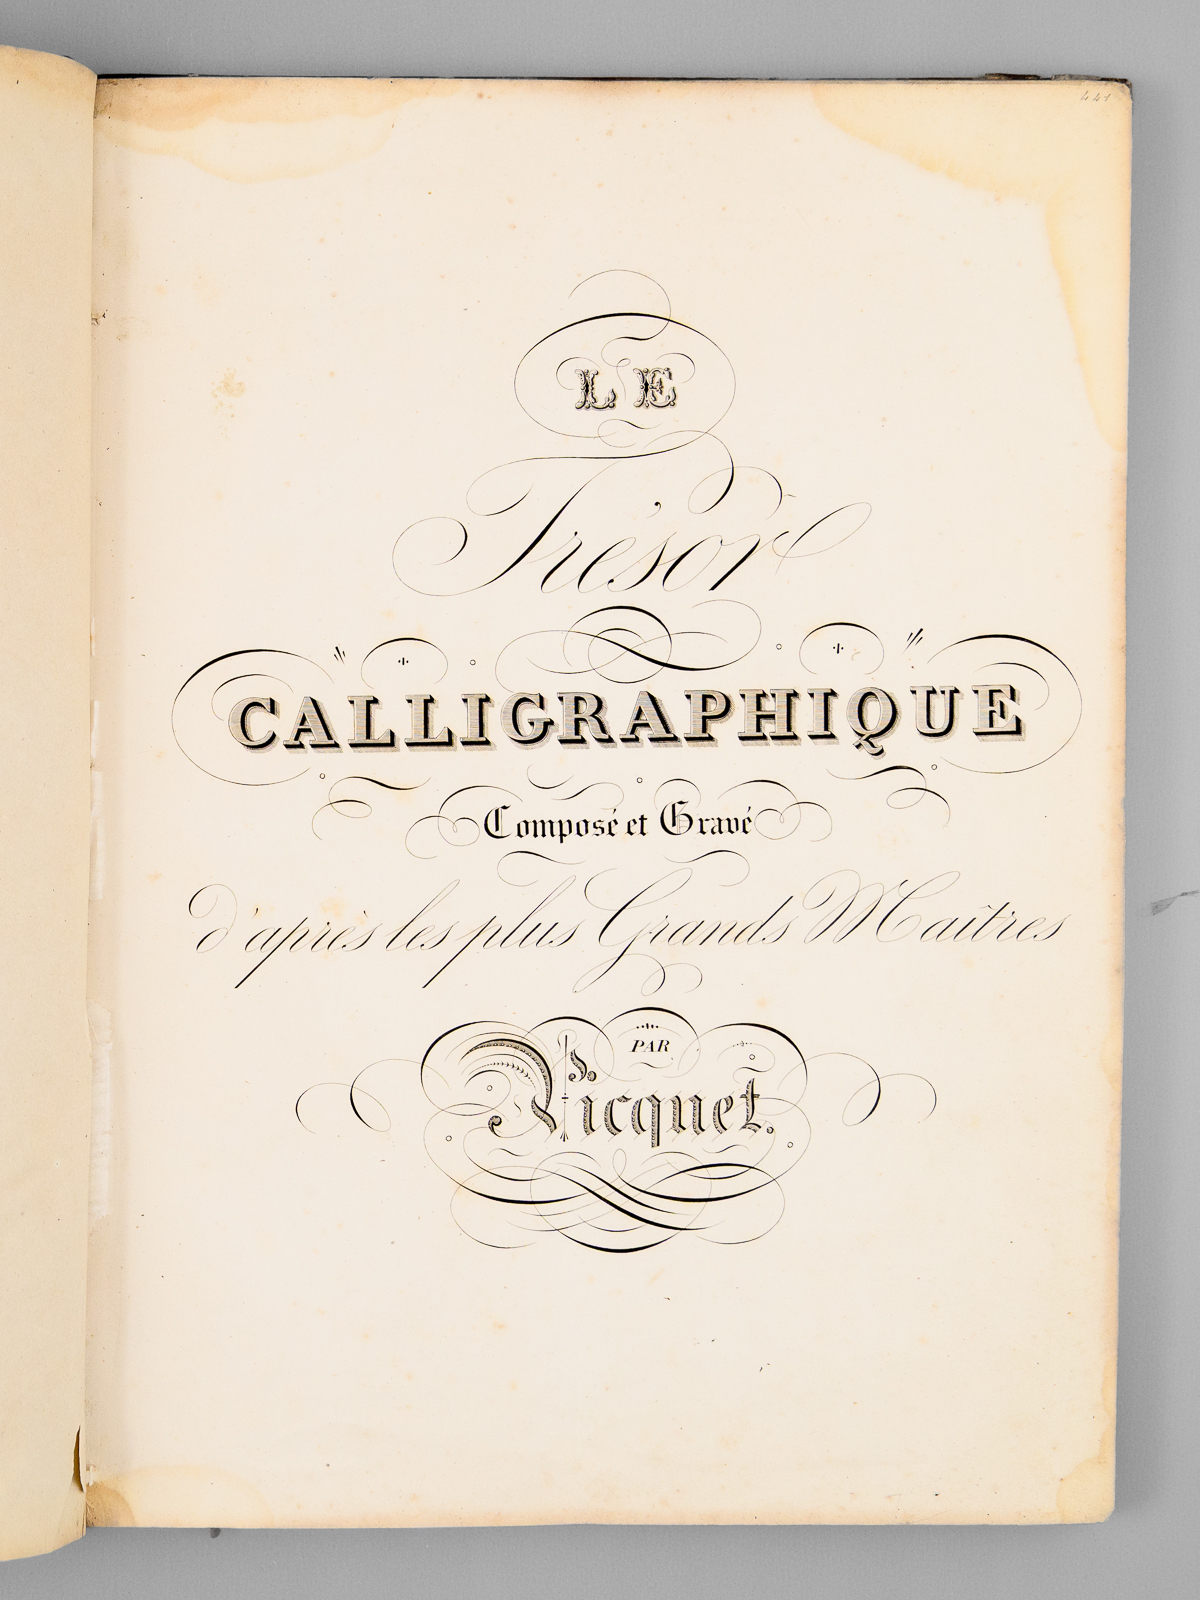 441
LE
Trésor
CALLIGRAPHIQUE
Composé et Gravé
d'après les plus Grands Maîtres
PAR
Picquet.